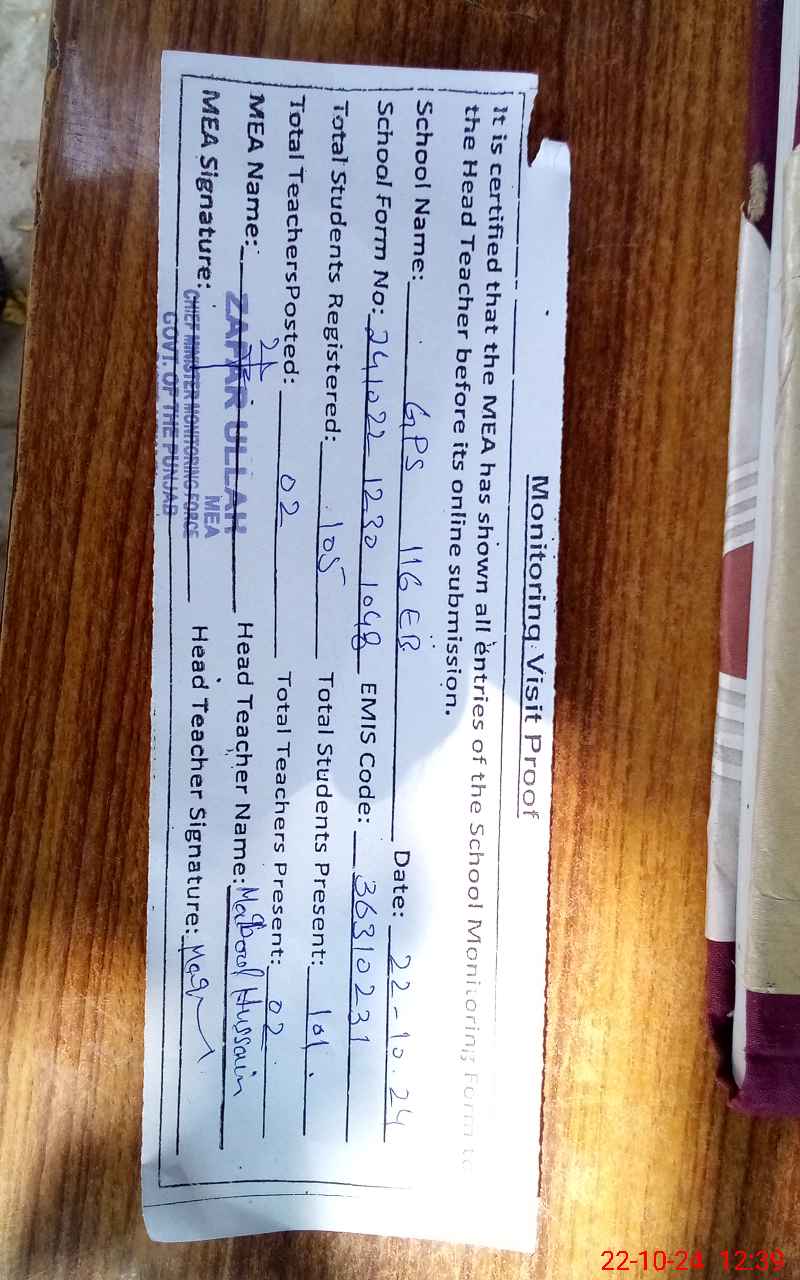 Monitoring Visit Proof
It is certified that the MEA has shown all entries of the School Monitoring Form to
the Head Teacher before its online submission.
School Name: GPS 116 EB Date: 22-10-24
School Form No: 241022 1230 1048 EMIS Code: 36310231
Total Students Registered: 105 Total Students Present: 101.
Total TeachersPosted: 02 Total Teachers Present: 02
MEA Name: ZAFAR ULLAH Head Teacher Name: Maqbool Hussain
MEA
MEA Signature: Head Teacher Signature:
CHIEF MINISTER MONITORING FORCE
GOVT. OF THE PUNJAB
22-10-24 12:39